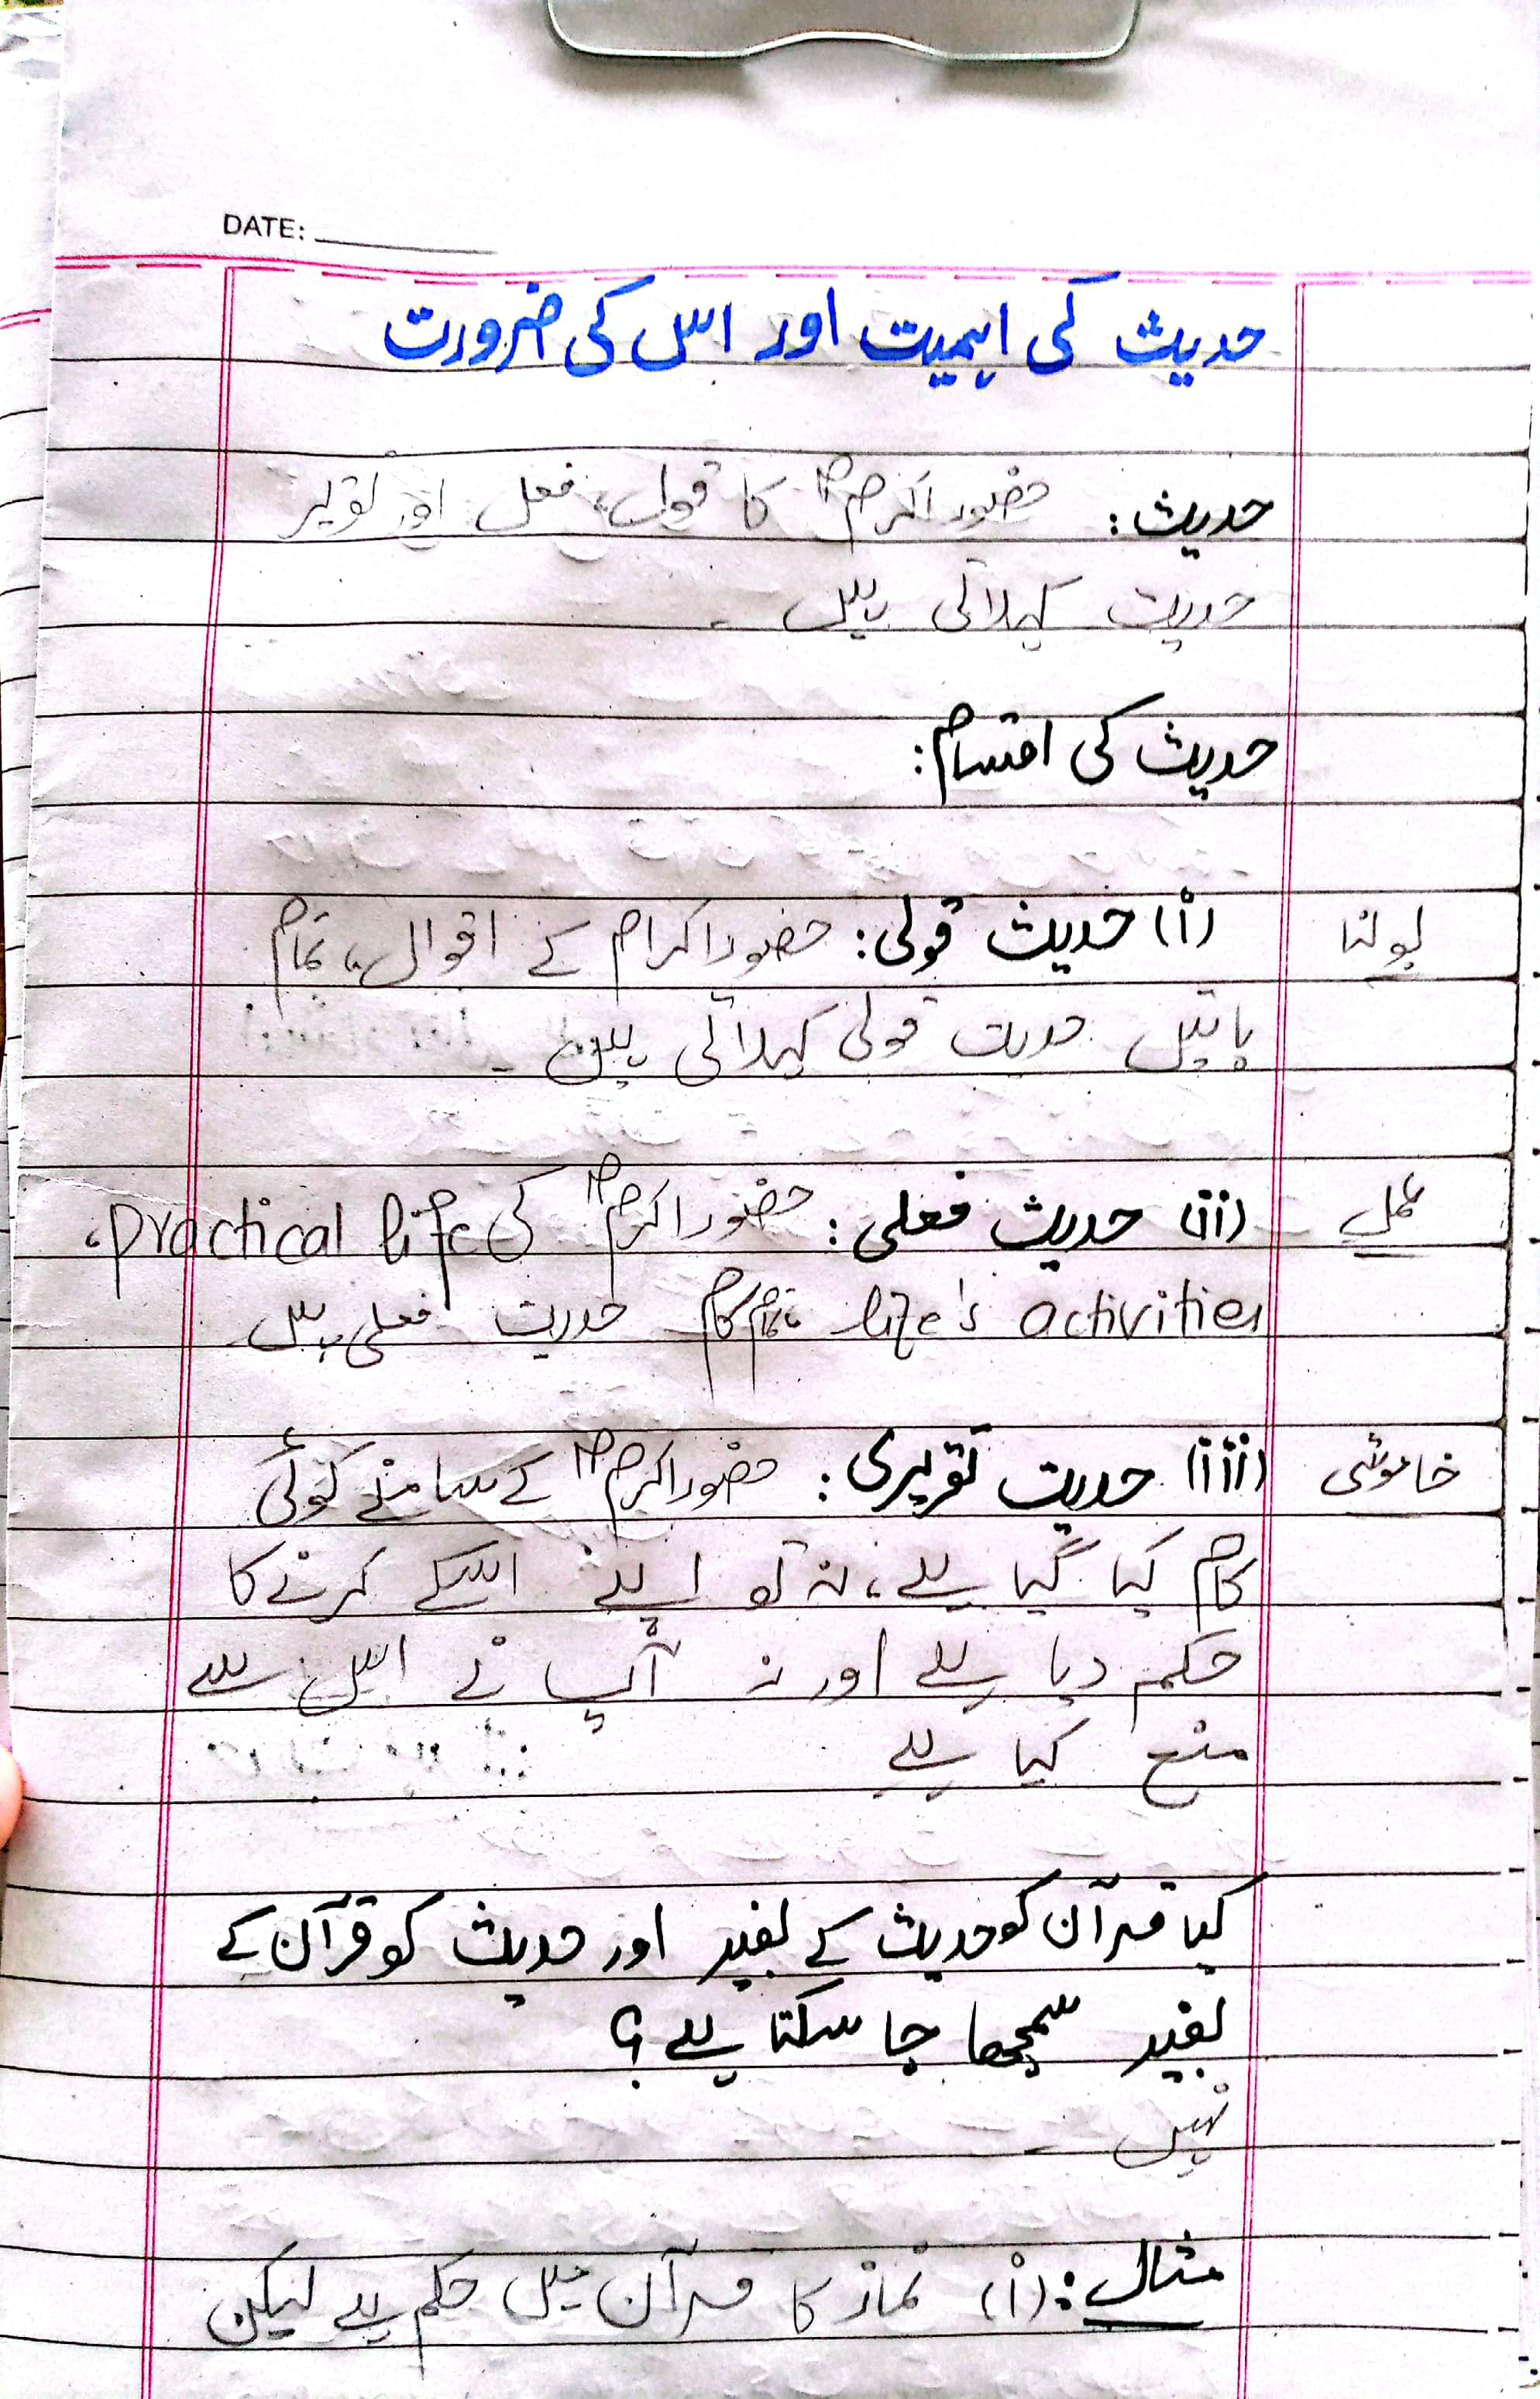 DATE:
حدیث کی اہمیت اور اس کی ضرورت
حدیث: حضور اکرمؐ کا قول، فعل اور تقریر
حدیث کہلاتی ہیں۔
حدیث کی اقسام:
(i) حدیث قولی: حضور اکرام کے اقوال، تمام
بولنا
باتیں حدیث قولی کہلاتی ہیں۔
(ii) حدیث فعلی: حضور اکرمؐ کی practical life،
عمل
life's activities، تمام کام حدیث فعلی ہیں
(iii) حدیث تقریری: حضور اکرمؐ کے سامنے کوئی
خاموشی
کام کیا گیا ہے، نہ تو اپنے اسکے کرنے کا
حکم دیا ہے اور نہ آپ نے اس سے
منع کیا ہے
کیا قرآن کو حدیث کے بغیر اور حدیث کو قرآن کے
بغیر سمجھا جا سکتا ہے؟
نہیں
مثال: (i) نماز کا قرآن میں حکم ہے لیکن